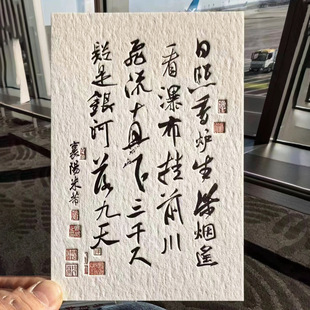 日照香炉生紫烟遥
看瀑布挂前川
飞流直下三千尺
疑是银河落九天
襄陽米芾